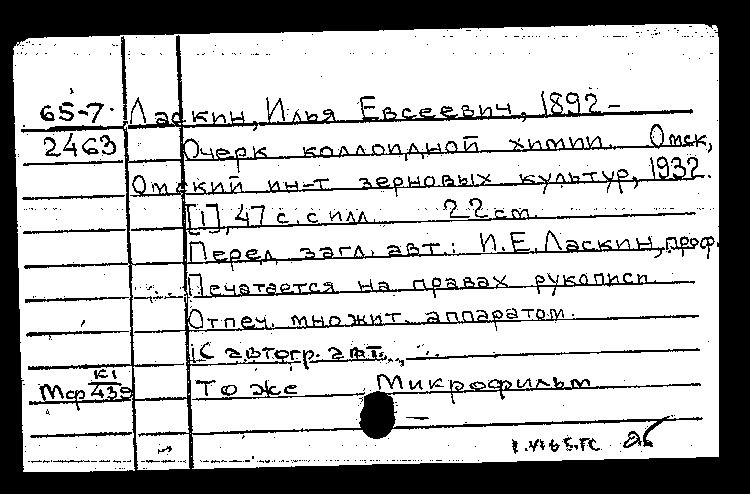 65-7. Ласкин, Илья Евсеевич, 1892-
2463 Очерк коллоидной химии. Омск,
Омский ин-т зерновых культур, 1932.
[1], 47 с. с илл. 22 см.
Перед загл. авт.: И.Е. Ласкин, проф.
Печатается на правах рукописи.
Отпеч. множит. аппаратом.
С автогр. авт.
Мф К1/439 То же Микрофильм